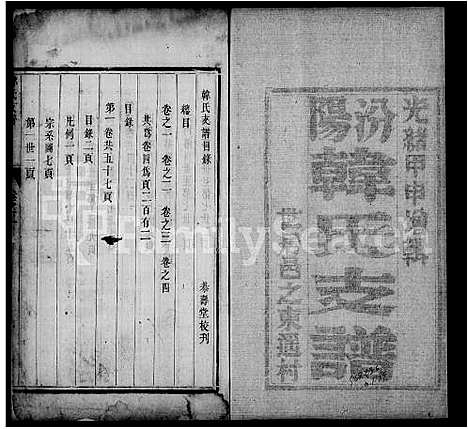 光緒甲申
汾陽韓氏支譜
世居邑之東遥村
韓氏支譜目錄
恭壽堂校刊
總目
卷之一 卷之二 卷之三 卷之四
共為卷四為頁二百有二
目錄
第一卷共五十七頁
目錄二頁
凡例一頁
宗系圖七頁
第一世一頁
FamilySearch